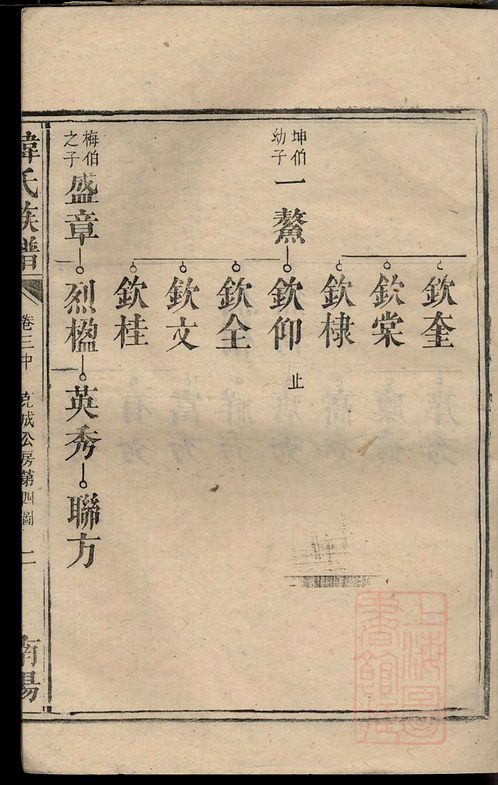 欽奎
欽棠
欽棣
坤伯幼子
一鰲
欽仰
止
欽全
欽文
欽桂
梅伯之子
盛章
烈楹
英秀
聯方
韓氏族譜
卷三中
克成公房第四圖
二
南陽
上海圖書館藏